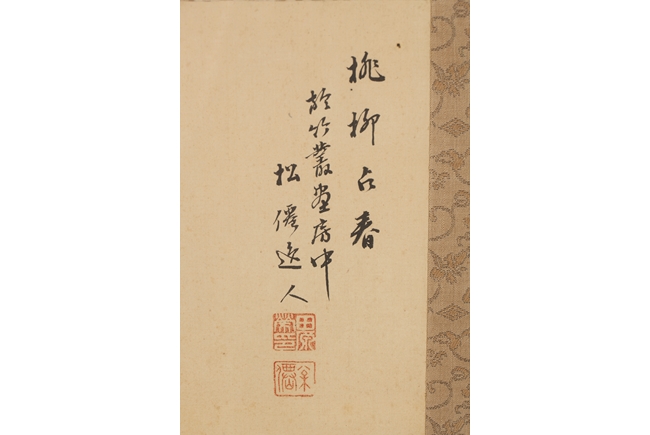 桃柳占春
於竹叢畫房中
松僊逸人